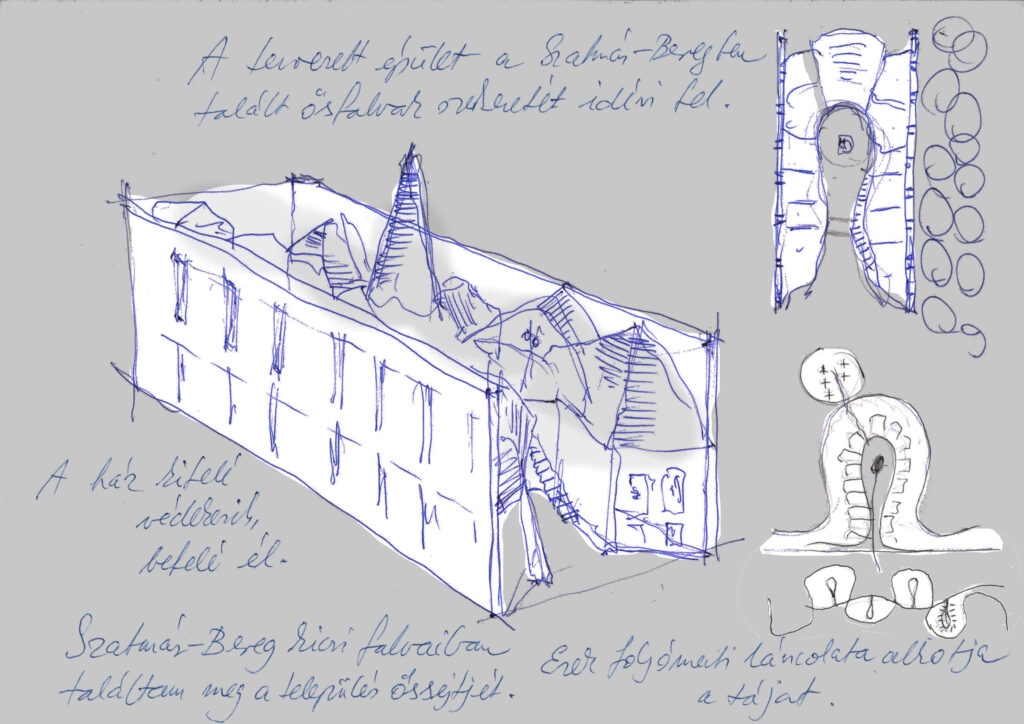 A tervezett épület a Szatmár-Beregben
talált ősfalvak szerkezetét idézi fel.
A ház kifelé
védekezik,
befelé él.
Szatmár-Bereg kicsi falvaiban
találtam meg a település őssejtjét.
Ezek folyómenti láncolata alkotja
a tájat.